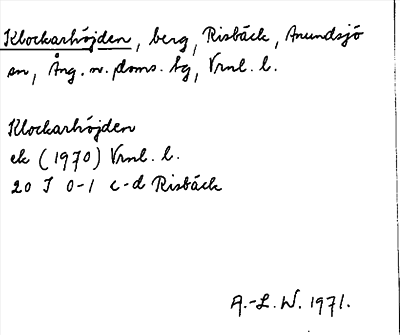 Klockarhöjden, berg, Risbäck, Anundsjö
sn, Ång. n. doms. tg, Vrnl. l.
Klockarhöjden
ek (1970) Vrnl. l.
20 I 0-1 c-d Risbäck
A.-L. W. 1971.